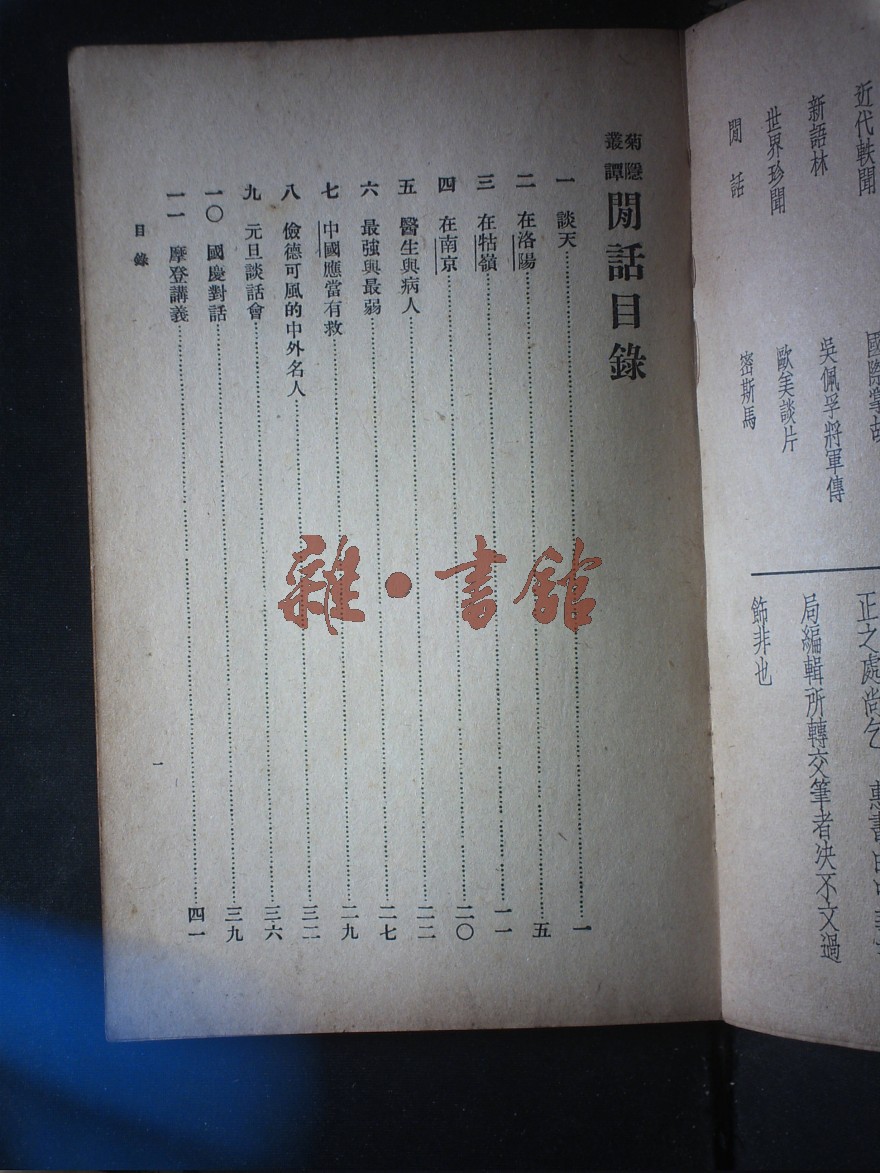 近代軼聞
新語林
世界珍聞
閒話
國際掌故
吳佩孚將軍傳
歐美談片
密斯馬
正之處尚乞 惠書由中
局編輯所轉交筆者決不文過
飾非也
菊隱叢譚 閒話目錄
一 談天……一
二 在洛陽……五
三 在牯嶺……一一
四 在南京……二〇
五 醫生與病人……二二
六 最強與最弱……二七
七 中國應當有救……二九
八 儉德可風的中外名人……三二
九 元旦談話會……三六
一〇 國慶對話……三九
一一 摩登講義……四一
目錄
一
雜·書館